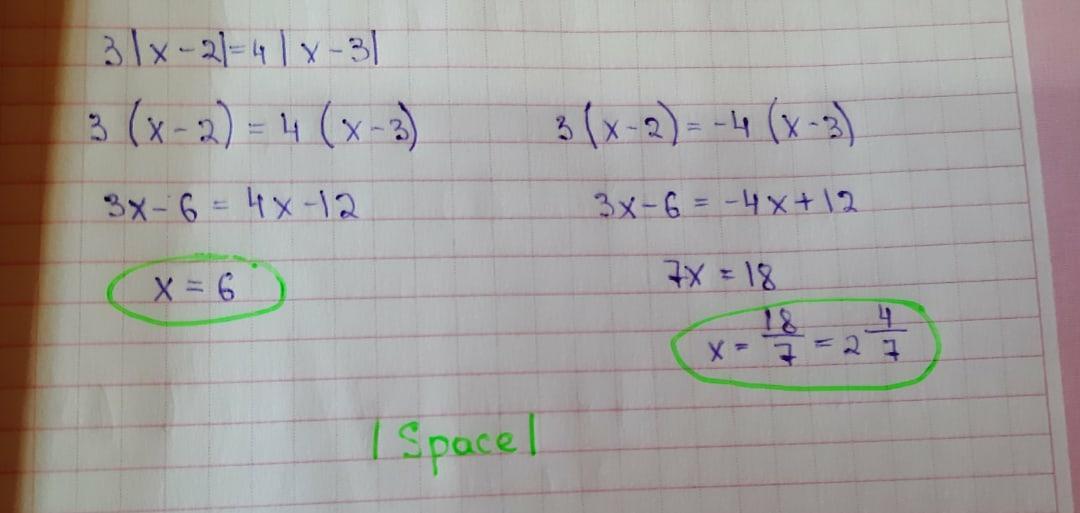 3|x-2|=4|x-3|
3(x-2)=4(x-3) 3(x-2)=-4(x-3)
3x-6=4x-12 3x-6=-4x+12
x=6 7x=18
x=18/7=2 4/7
|Space|